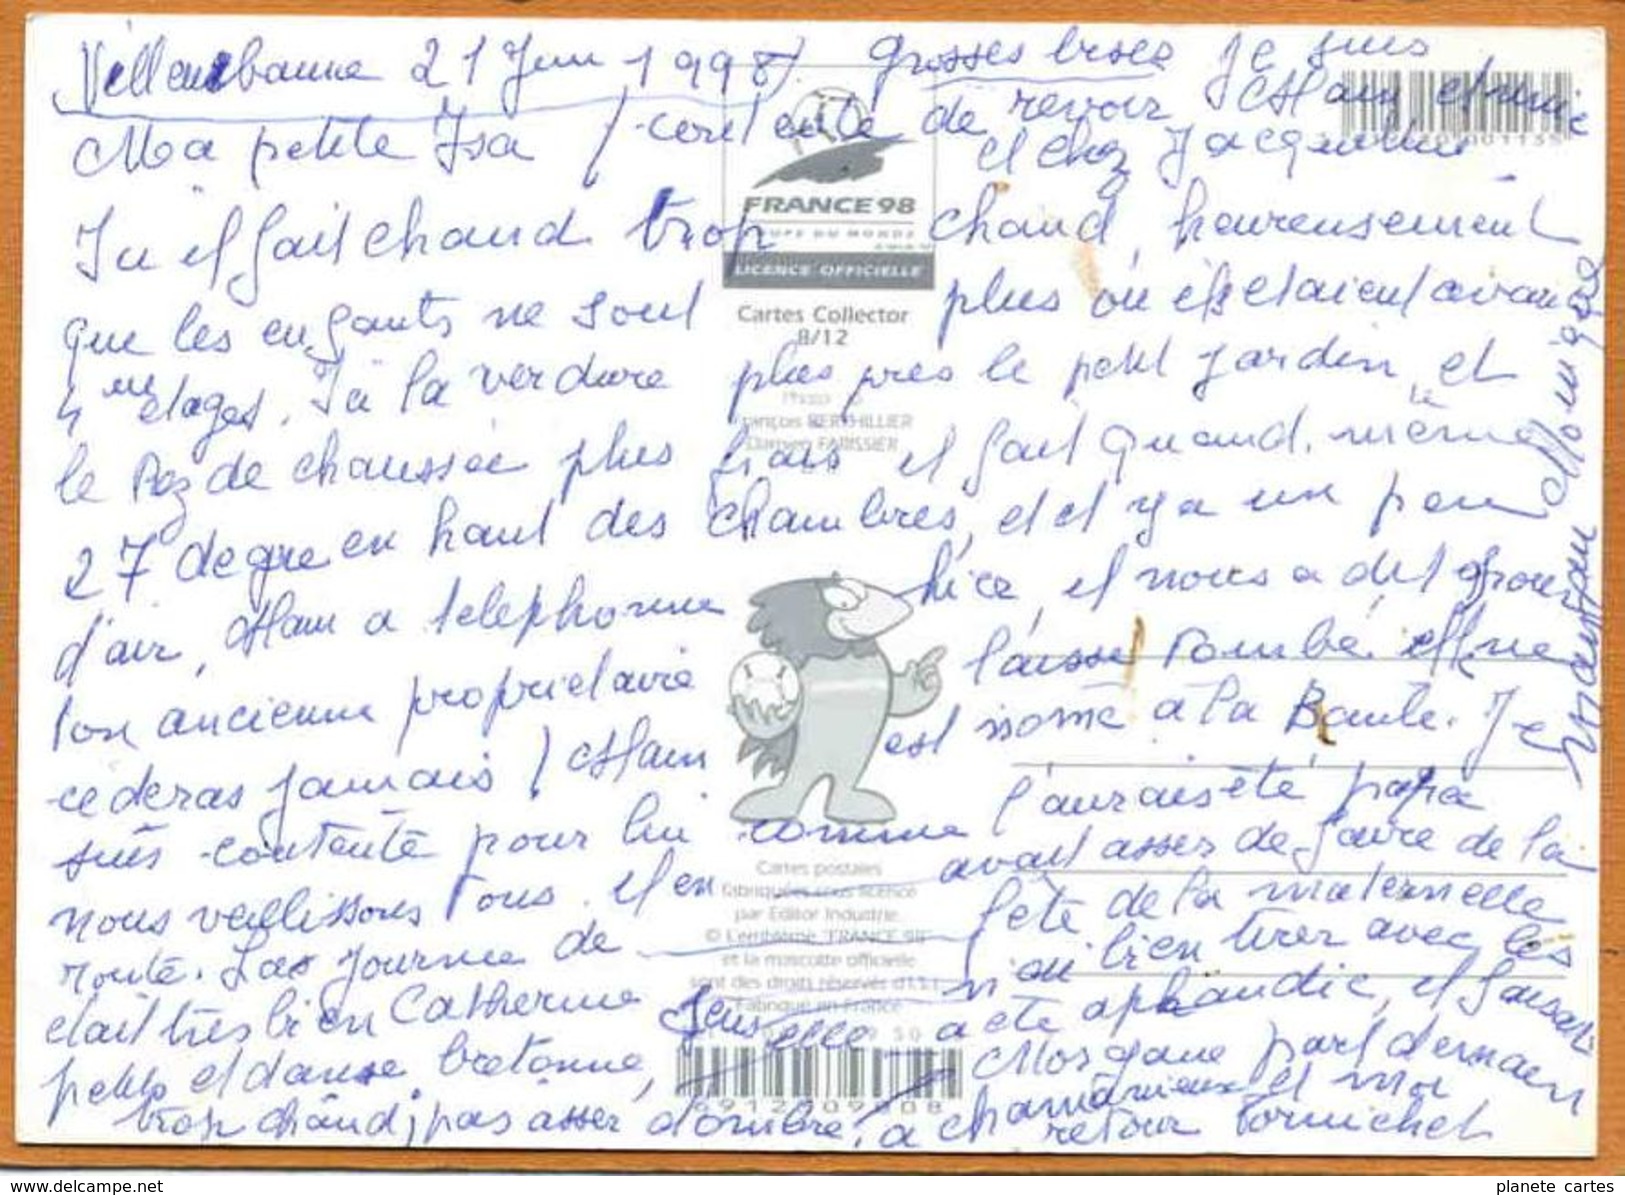 Villeurbanne 21 Juin 1998. grosses bises Je suis
Ma petite Isa / contente de revoir Alain et
et chez Jacqueline
Ici il fait chaud trop chaud, heureusement
que les enfants ne sont plus où ils etaient avant
4 eme etages. Ici la verdure plus près le petit jardin, et
le Rez de chaussée plus frais il fait quand même
27 degre en haut des chambres, et il y a un peu
d'air, Alain a telephonne hier, et nous a dit
ton ancienne proprietaire l'aisse tombé elle ne
cederas jamais / Alain est nomé à la Baule. Je
suis contente pour lui comme l'aurais été papa
nous veillissons tous. il en avait asser de faire de la
route. Las journee de fête de la maternelle
etait très bien Catherine s'en bien tirer avec les
petits et danse bretonne, elle a ete aplaudie, il faisait
trop chaud, pas asser d'ombre, Morgane part demain
a et moi
retour Pornichet
maman
Monique
FRANCE 98
COUPE DU MONDE
LICENCE OFFICIELLE
Cartes Collector
8/12
François BERTHILLIER
Damien FARISSIER
Cartes postales
fabriquées sous licence
par Editor Industrie.
© L'emblème "FRANCE 98"
et la mascotte officielle
sont des droits réservés d'I.S.L.
Fabriqué en France
www.delcampe.net
planete cartes